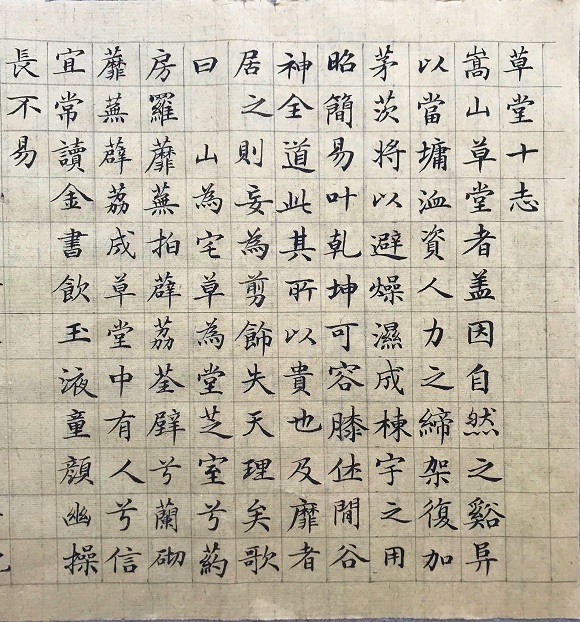 草堂十志
嵩山草堂者盖因自然之谿异
以當墉洫資人力之締架復加
茅茨將以避燥濕成棟宇之用
昭簡易叶乾坤可容膝休閒谷
神全道此其所以貴也及靡者
居之則妄為剪飾失天理矣歌
曰 山為宅草為堂芝室兮葯
房羅蘼蕪拍薜荔荃壁兮蘭砌
蘼蕪薜荔成草堂中有人兮信
宜常讀金書飲玉液童顏幽操
長不易